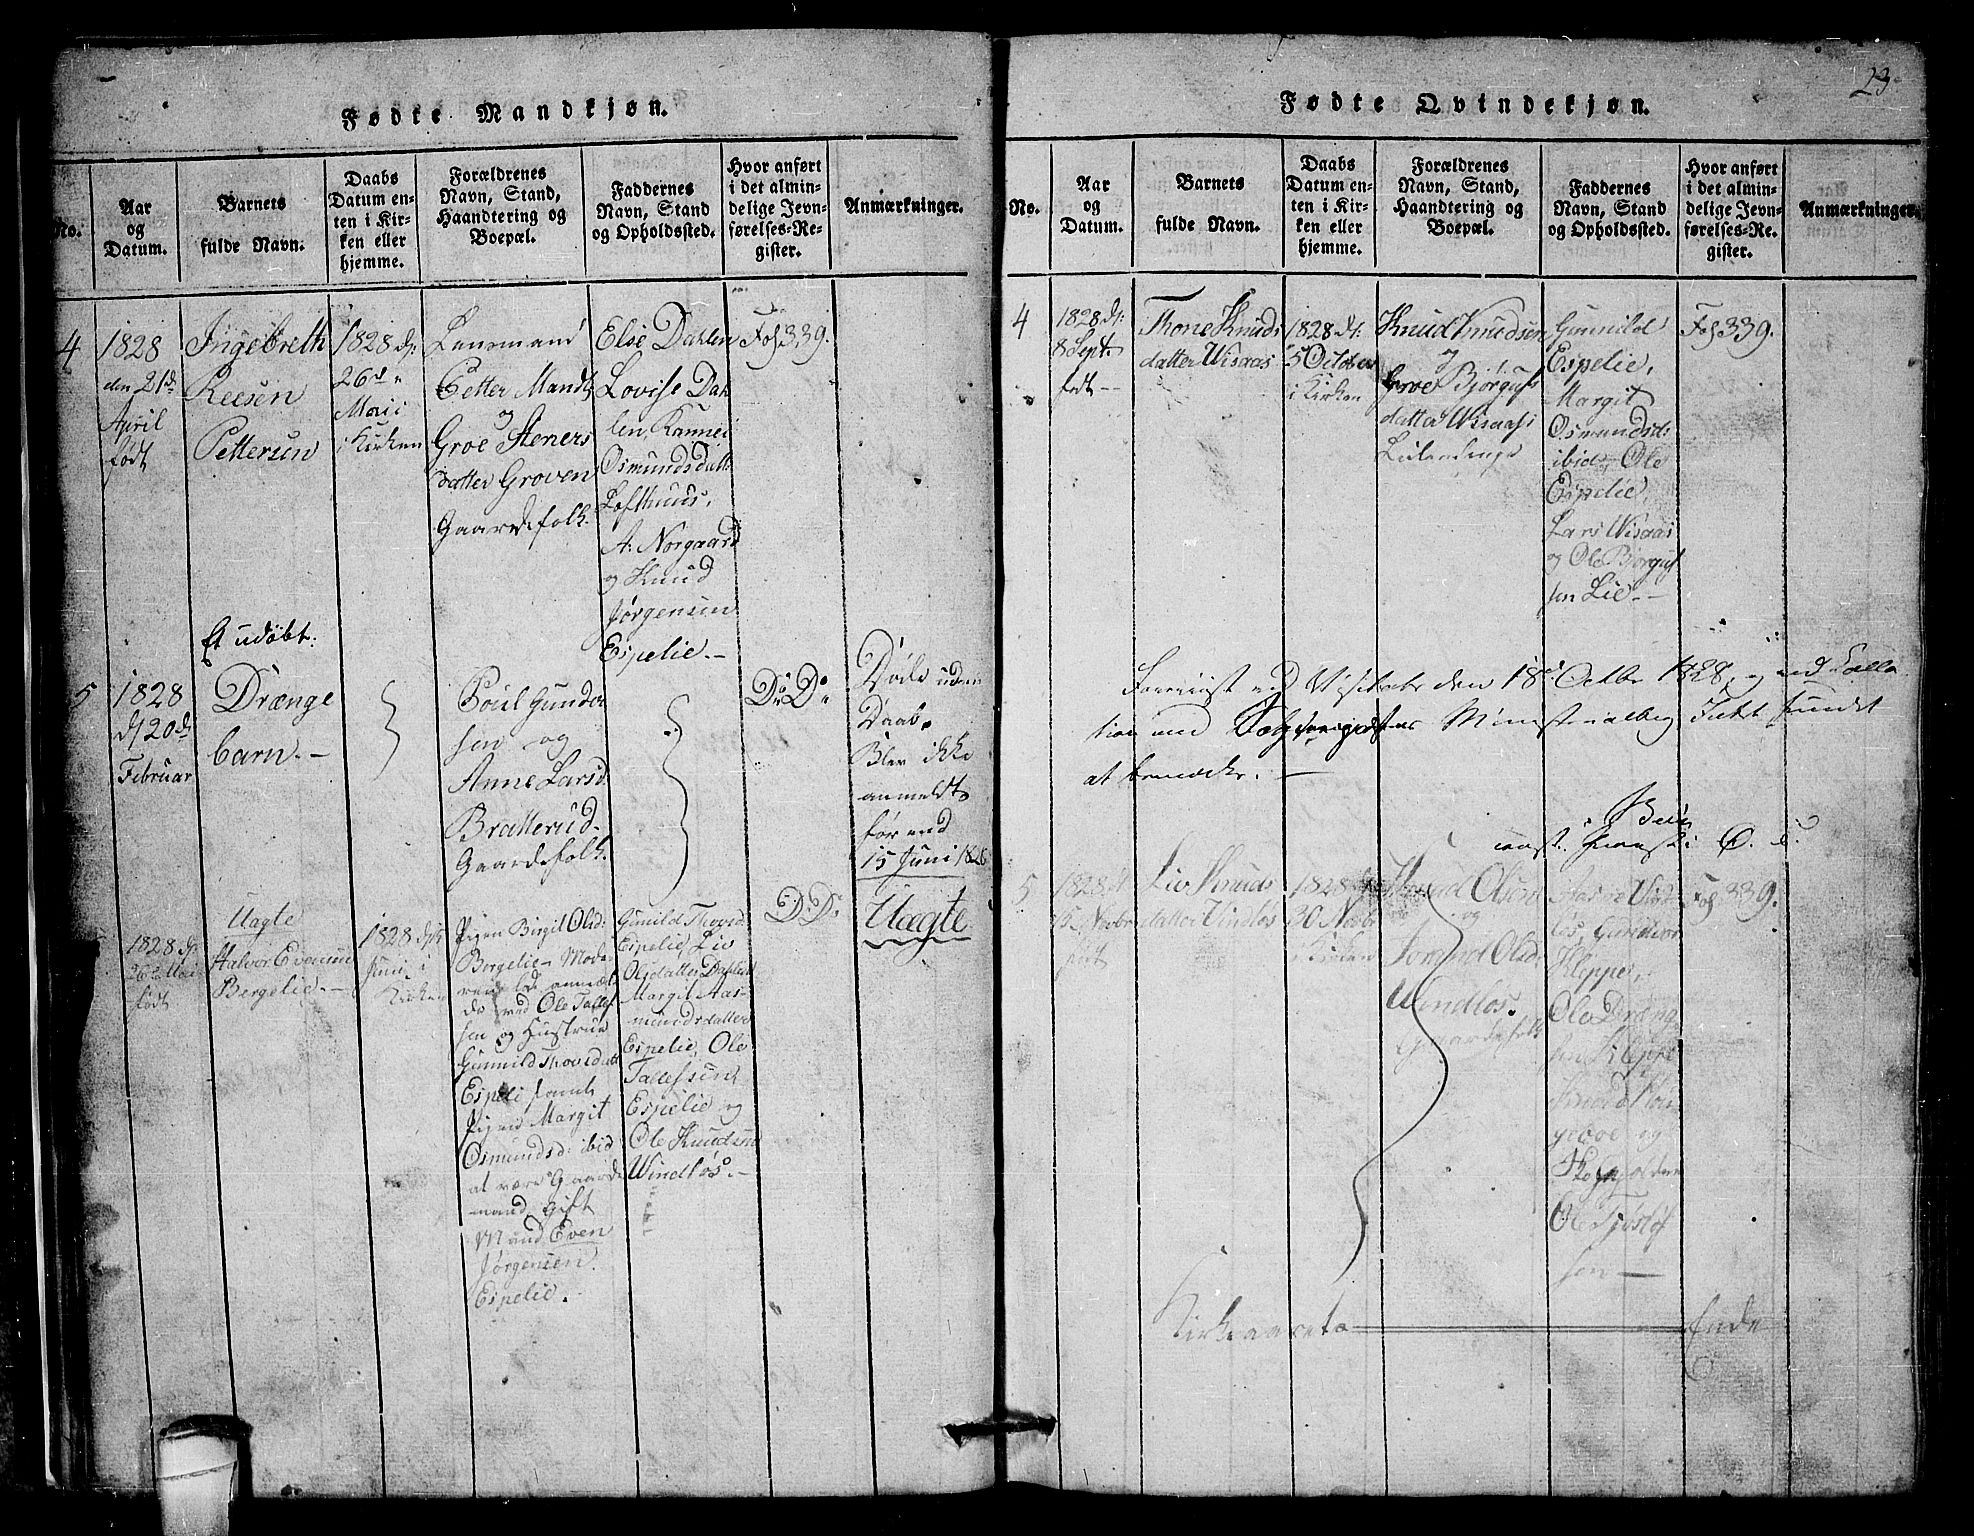 23
Fødte Mandkjøn.
No.
Aar
og
Datum.
Barnets
fulde Navn.
Daabs
Datum en-
ten i Kir-
ken eller
hjemme.
Forældrenes
Navn, Stand,
Haandtering og
Boepæl.
Faddernes
Navn, Stand
og Opholdssted.
Hvor anført
i det almin-
delige Jevn-
førelses-Re-
gister.
Anmærkninger.
4
1828
den 21d
April
født
Ingebreth
Reesen
Pettersen
1828 d:
26d
Maii
i Kirken
Lensmand
Petter Mandt
og
Groe Steners
datter Groven
Gaardefolk.
Else Dahlen
Lovise Dah
len, Kannei
Osmundsdatt:
Lofthuus,
A. Norgaard
og Knud
Jørgensen
Espelie.-
Fol 339.
5
1828
d 20d
Februar
Et udøbt:
Drænge
barn.-
Poul Gunder
sen og
Anne Larsd.
Bratterud-
Gaardefolk.
Do Do
Døde uden
Daab.
Blev ikke
anmeldt
før end
15 Juni 1828
1828 d:
26 Maii
født
Uægte
Halvor Evensen
Bergelie.-
1828 d
Juni i
Kirken
Pigen Birgit Olsd:
Borgelie- Mode
ren
do med Ole Tallef
sen og Hustrue
Gunnild Thovsdatt
Espeli samt
Pigen Margit
Osmundsd: ibid
at være Gaard
mand gift
Mand Even
Jørgensen
Espelie.
Gunild Thovsd.
Espelie, Liv
Olsdatter Dahlen
Margit Aas-
mundsdatter
Espelie, Ole
Tallefsen
Espelie og
Ole Knudsen
Windløs.-
Do Do
Uægte
Fødte Qvindekjøn.
No.
Aar
og
Datum.
Barnets
fulde Navn.
Daabs
Datum en-
ten i Kir-
ken eller
hjemme.
Forældrenes
Navn, Stand,
Haandtering og
Boepæl.
Faddernes
Navn, Stand
og Opholdssted.
Hvor anført
i det almin-
delige Jevn-
førelses-Re-
gister.
Anmærkninger.
4
1828 d:
8 Sept.
født -
Thone Knuds
datter Wisaas
1828 d:
5 October
i Kirken
Knud Knudsen
og
Groe Bjørgufs
datter Wisaas
Gunnild
Espelie,
Margit
Osmundsd:
ibid, Ole
Espelie,
Lars Wisaas
og Ole Bjørguf
sen Lie.-
Fol 339.
Foreviist ved Visitats den 18d Octbr 1828, og ved Colla
tion med Ministerialbog Intet fundet
at bemærke.-
5
1828 d:
15 Novbr
født
Liv Knuds
datter Vindløs
1828 d
30 Novbr
i Kirken
Knud Olsen
og
Olsd:
Windløs.
Gaardefolk
Vind
løs, Gunder
Klepper,
Ole Dræng
sen Kleppe
Knud
og
Ole
sen -
Fol 339.
Kirkeaarets Ende